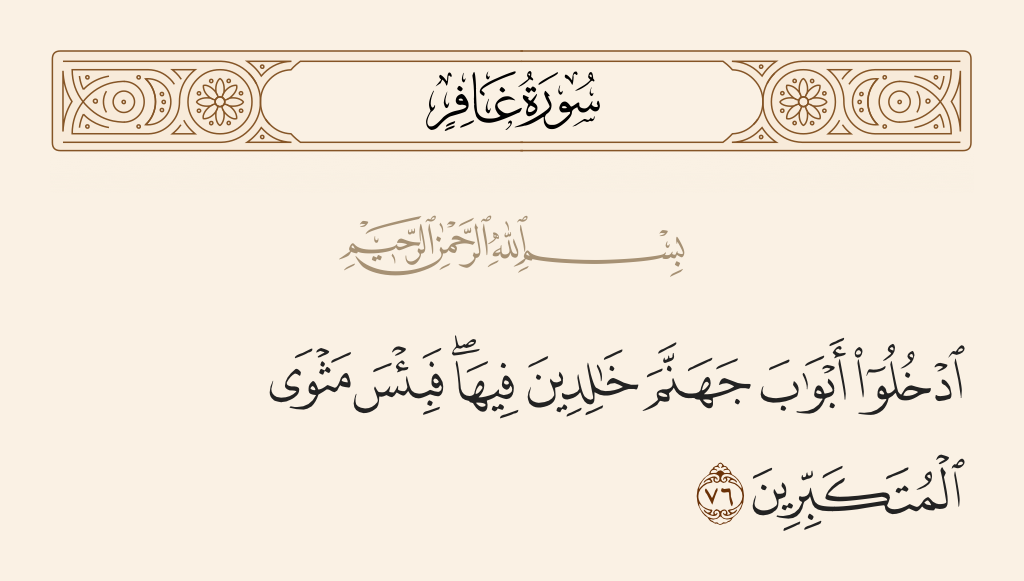 سُورَةُ غَافِرٍ
بِسْمِ ٱللَّهِ ٱلرَّحْمَٰنِ ٱلرَّحِيمِ
ٱدْخُلُوٓا۟ أَبْوَٰبَ جَهَنَّمَ خَٰلِدِينَ فِيهَا ۖ فَبِئْسَ مَثْوَى
ٱلْمُتَكَبِّرِينَ ٧٦